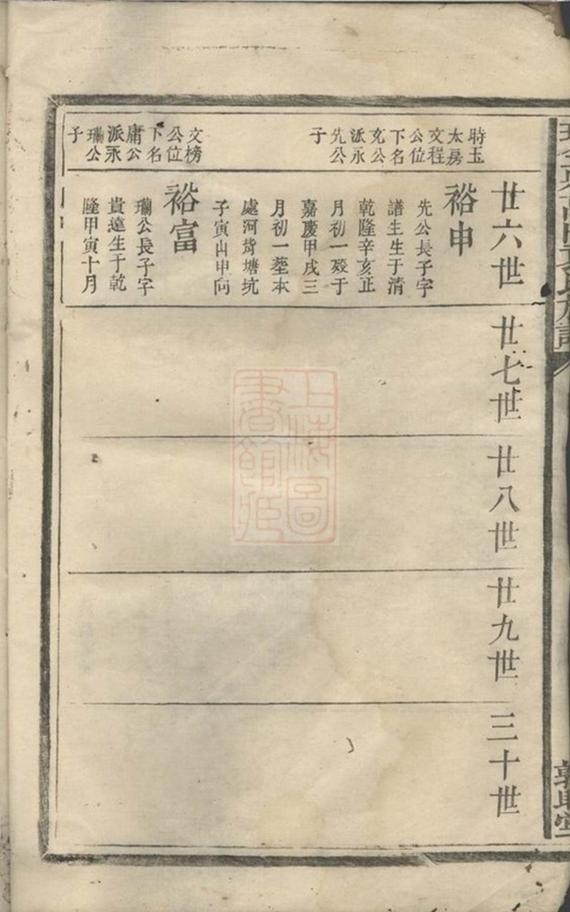 時玉
太房
文程
公位
下名
克公
派永
先公
子
文榜
公位
下名
庸公
派永
瓓公
子
廿六世
裕申
先公長子字
譜生生于清
乾隆辛亥正
月初一歿于
嘉慶甲戌三
月初一塟本
處河背塘坑
子寅山申向
裕富
瓓公長子字
貴遠生于乾
隆甲寅十月
廿七世
廿八世
廿九世
三十世
上海圖
書館